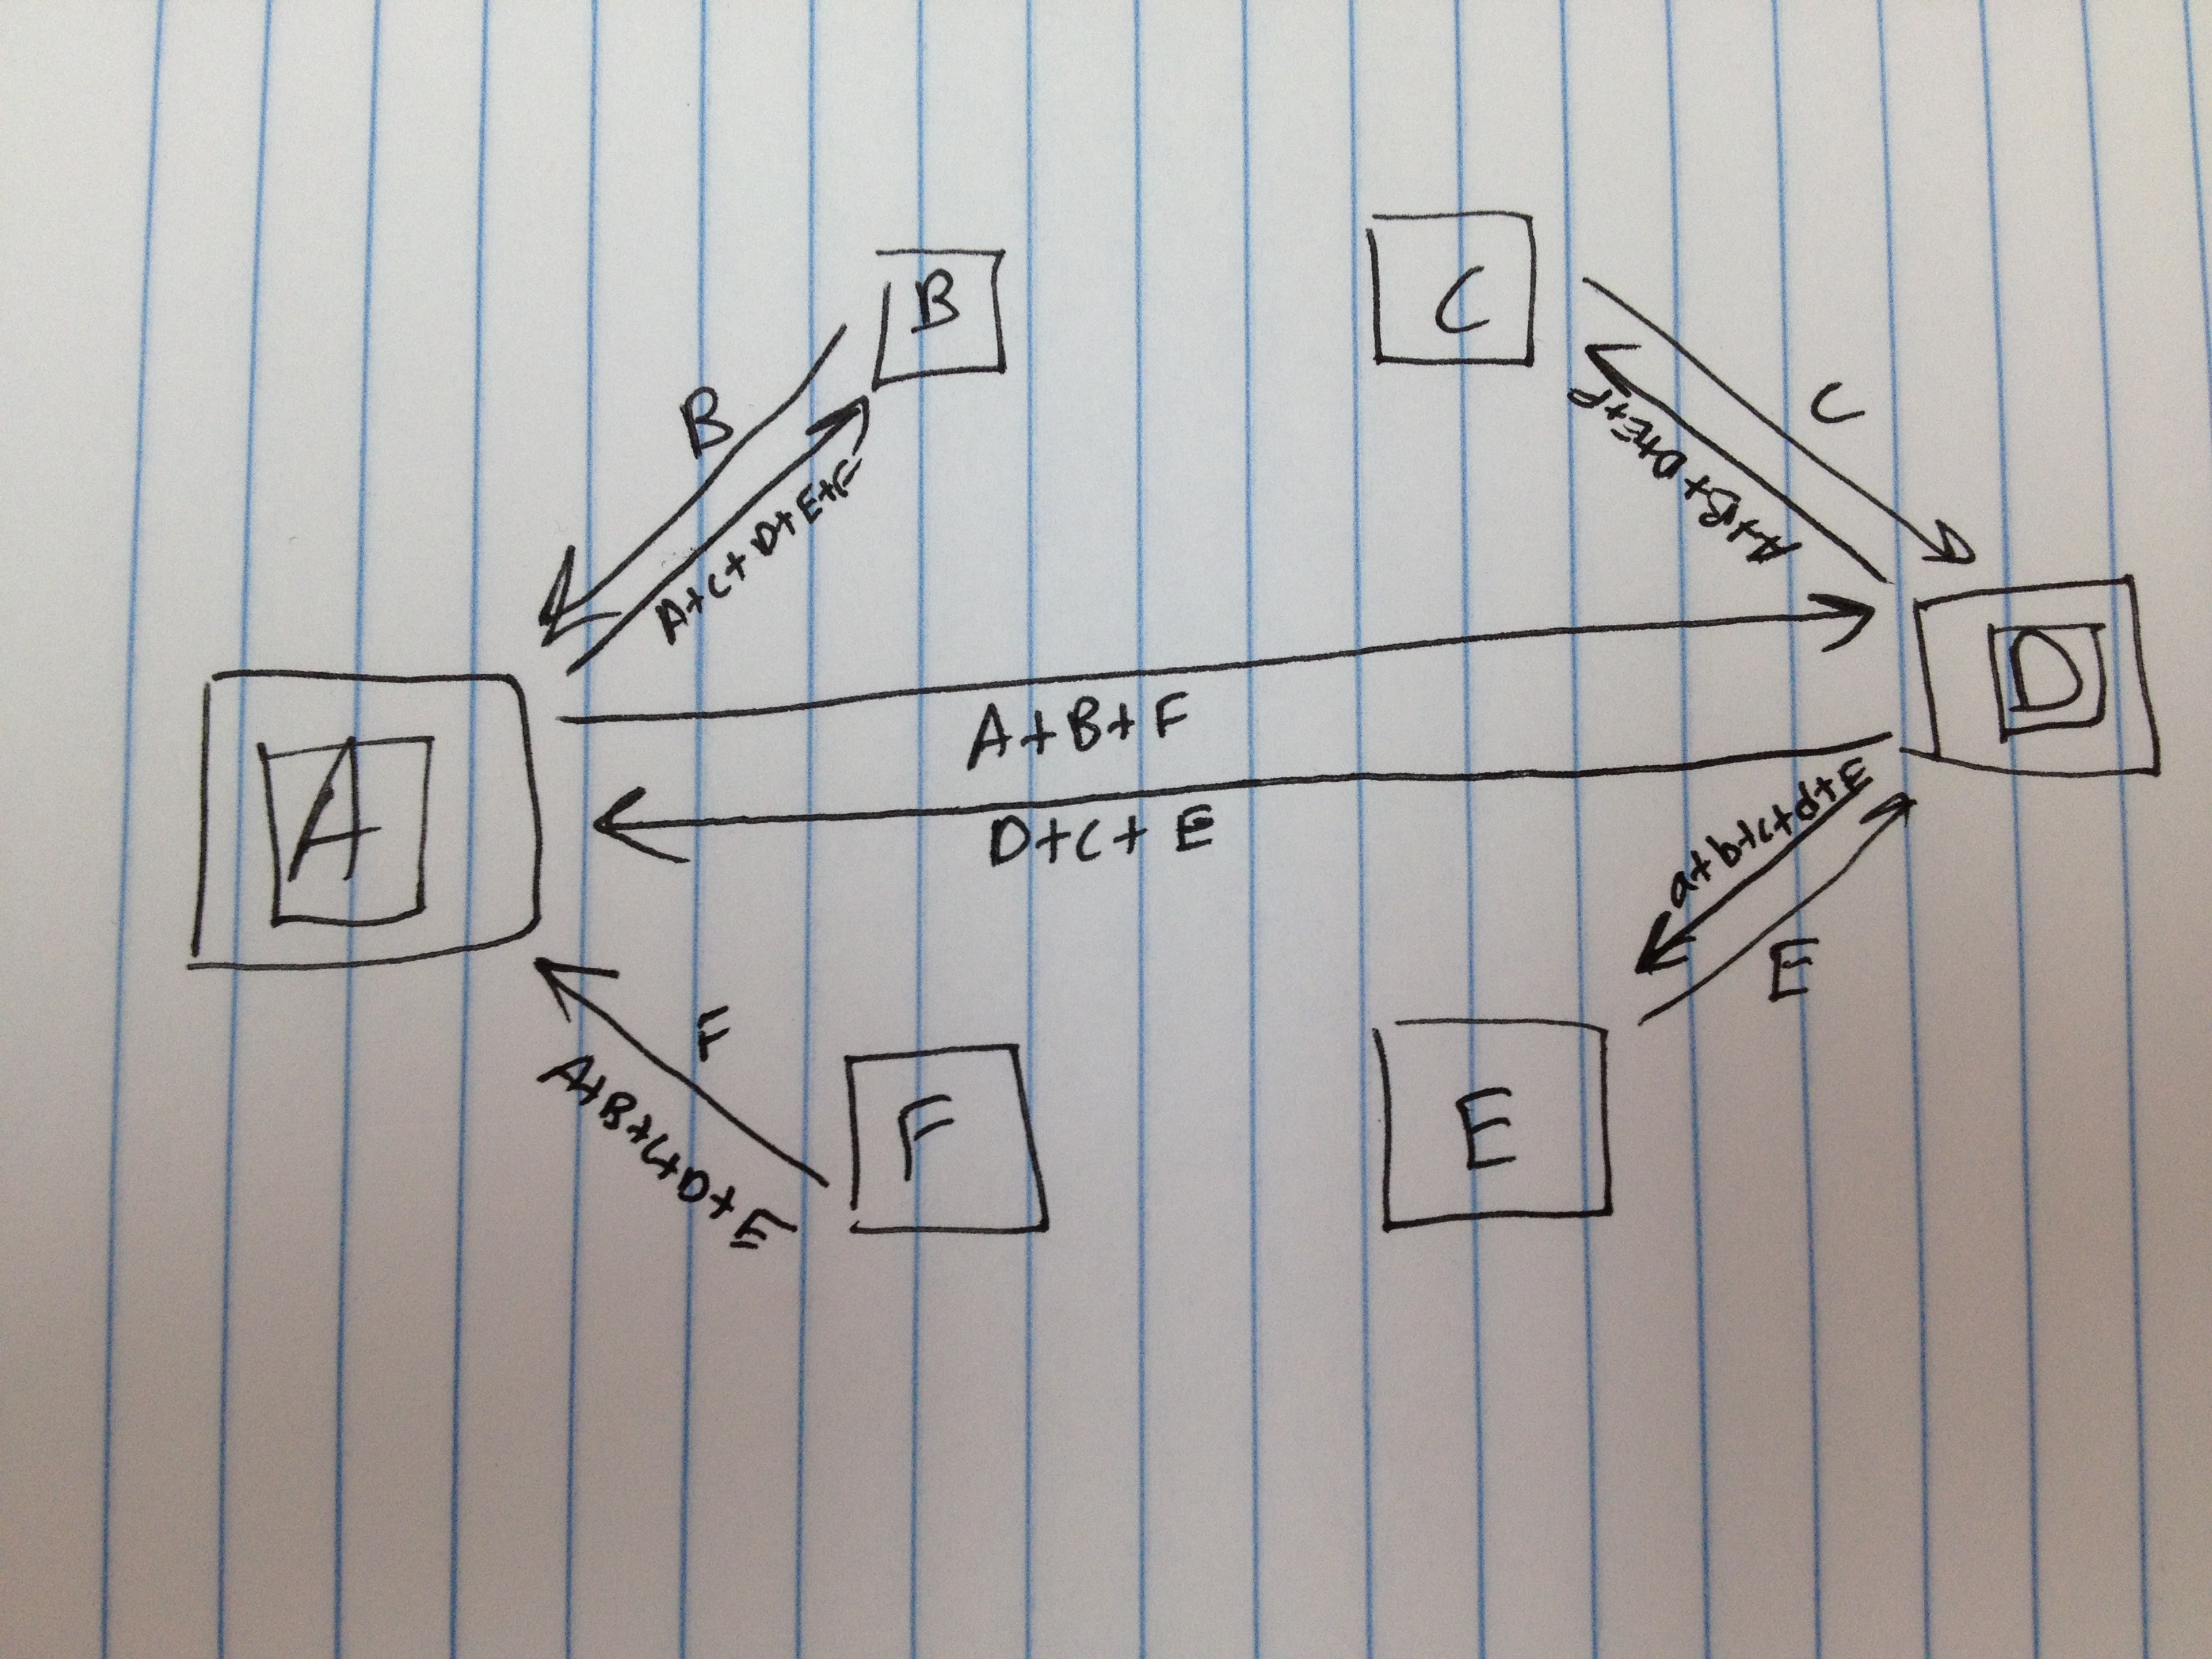 B
C
B
C
A+C+D+E+F
A+B+D+E+F
D
A+B+F
A
D+C+E
a+b+c+d+E
E
F
A+B+C+D+E
F
E